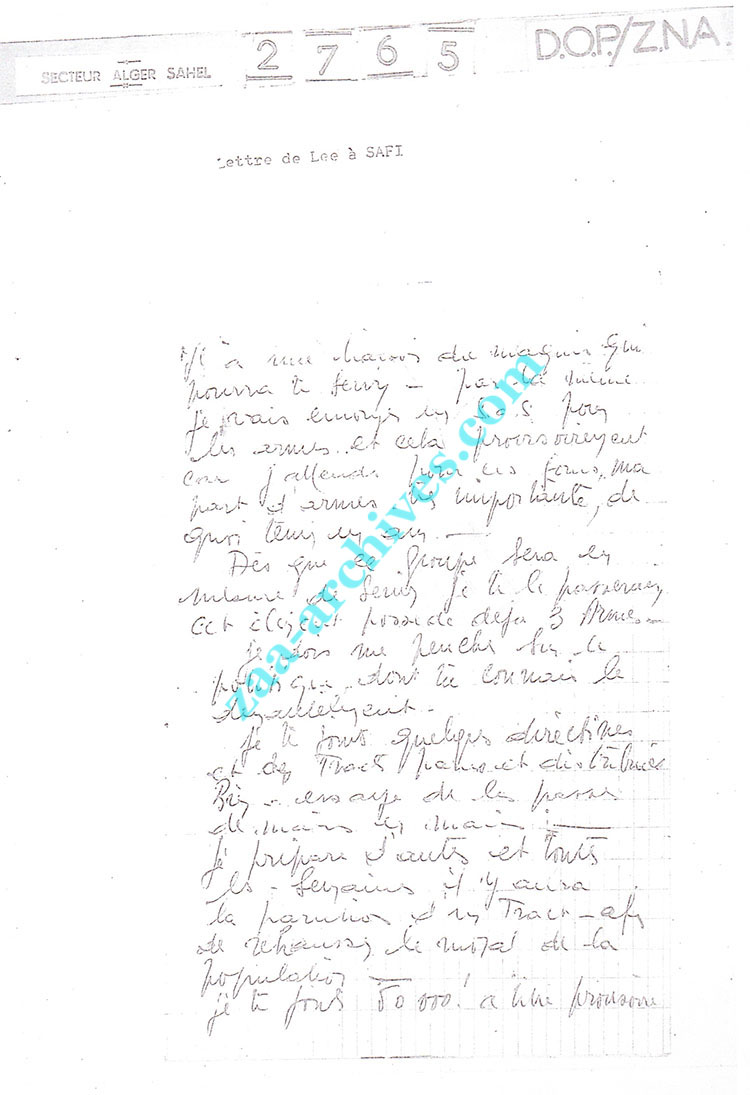 SECTEUR ALGER SAHEL
2 7 6 5
D.O.P./Z.N.A.
Lettre de Lee à SAFI
une liaison du maquis qui
pourra te servir – par la même
je vais envoyer un S.O.S pour
les armes et cela provisoirement
car j'attends pour ma
part d'armes très importante, de
quoi tenir un an. –
Dès que ce groupe sera en
mesure de servir je te le passerai
cet élément possède déjà 3 Armes –
je dois me penche sur le
politique dont tu connais le
je te joins quelques directives
et des Tracts parus et distribués
Bien – essaye de les passer
de mains en mains
je prépare d'autres et toutes
les semaines il y aura
la parution d'un Tract – afin
de rehausser le moral de la
population –
je te joins 50000! a titre provisoire
zaa-archives.com